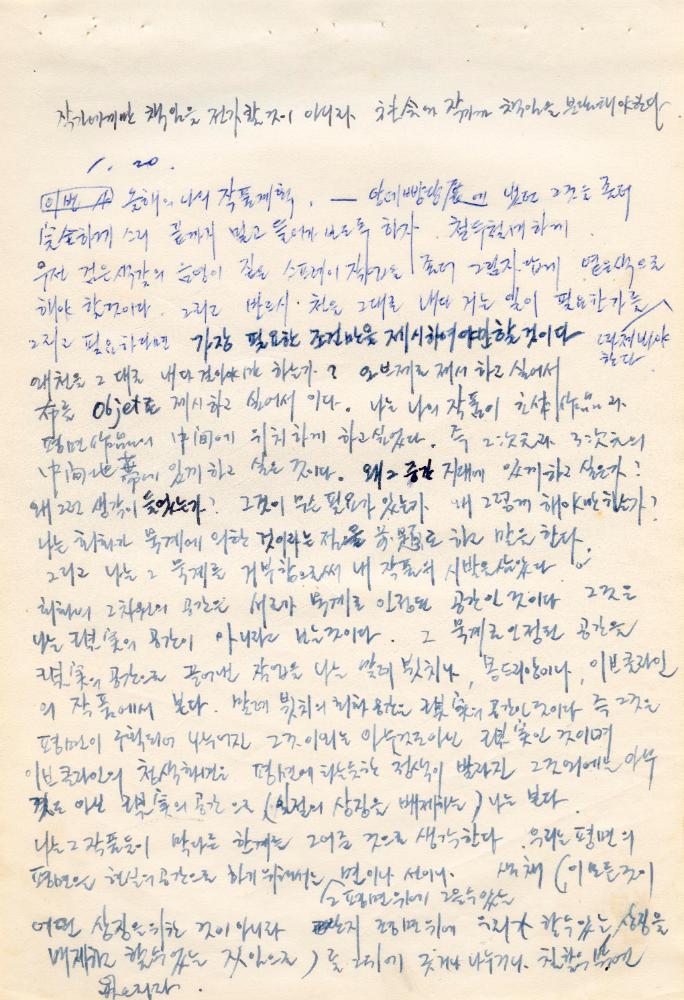 작가에게만 책임을 전가할것이 아니라 社会에 작가가 책임을 분담해야한다
1. 20.
이번 올해의 나의 작품계획. — 앙데빵당展에 냈던 그것을 좀더
完全하게 스리 끝까지 밀고 들어가 보도록 하자. 철두철미하게.
우선 검은색깔의 음영이 짙은 스프레이 작업을 좀더 그림자답게 옅은색으로
해야 할것이다. 그리고 반드시 천을 그대로 내다 거는 일이 필요한가를
그리고 필요하다면 가장 필요한 조건만을 제시하여야만 할 것이다 따져봐야
한다
왜 천을 그대로 내다 걸어야만 하는가? 오브제로 제시하고 싶어서
布를 objet로 제시하고 싶어서 이다. 나는 나의 작품이 立体作品과
평면作品의 中間에 위치하게 하고싶었다. 즉 2次元과 3次元의
中間地帶에 있게 하고 싶은 것이다. 왜 그 중간 지대에 있게 하고 싶은가?
왜 그런 생각이 들었는가? 그것이 무슨 필요가 있는가. 왜 그렇게 해야만 하는가?
나는 회화가 묵계에 의한 것이라는 점을 前題로 하고 말을 한다.
그리고 나는 그 묵계를 거부함으로써 내 작품의 시발을 삼았다
회화의 2차원의 공간은 서로가 묵계로 인정된 공간인 것이다 그것은
나는 現実의 공간이 아니라고 보는것이다. 그 묵계로 인정된 공간을
現実의 공간으로 끌어낸 작업을 나는 말레빗치나, 몽드리앙이나, 이브클라인
의 작품에서 본다. 말레빗치의 회화 공간은 現実의 공간인 것이다 즉 그것은
평면이 구획되어 나누어진 그것 이외는 아무것도 아닌 現実인 것이며
이브클라인의 청색회화는 평면에 청색이 발라진 그것 외에는 아무
것도 아닌 現実의 공간으로 (일절의 상징을 배제하는) 나는 본다.
나는 그 작품들이 막다른 한계를 그어준 것으로 생각한다. 우리는 평면의
평면을 현실의 공간으로 하게 위해서는 면이나 선이나. 색채 (이 모든것이
그 평면위에 그을수있는
어떤 상징을 위한 것이 아니라 단지 평면위에 할수있는 상징을
배제하고 할수있는 것임으로) 를 그 위에 긋거나 나누거나. 칠함